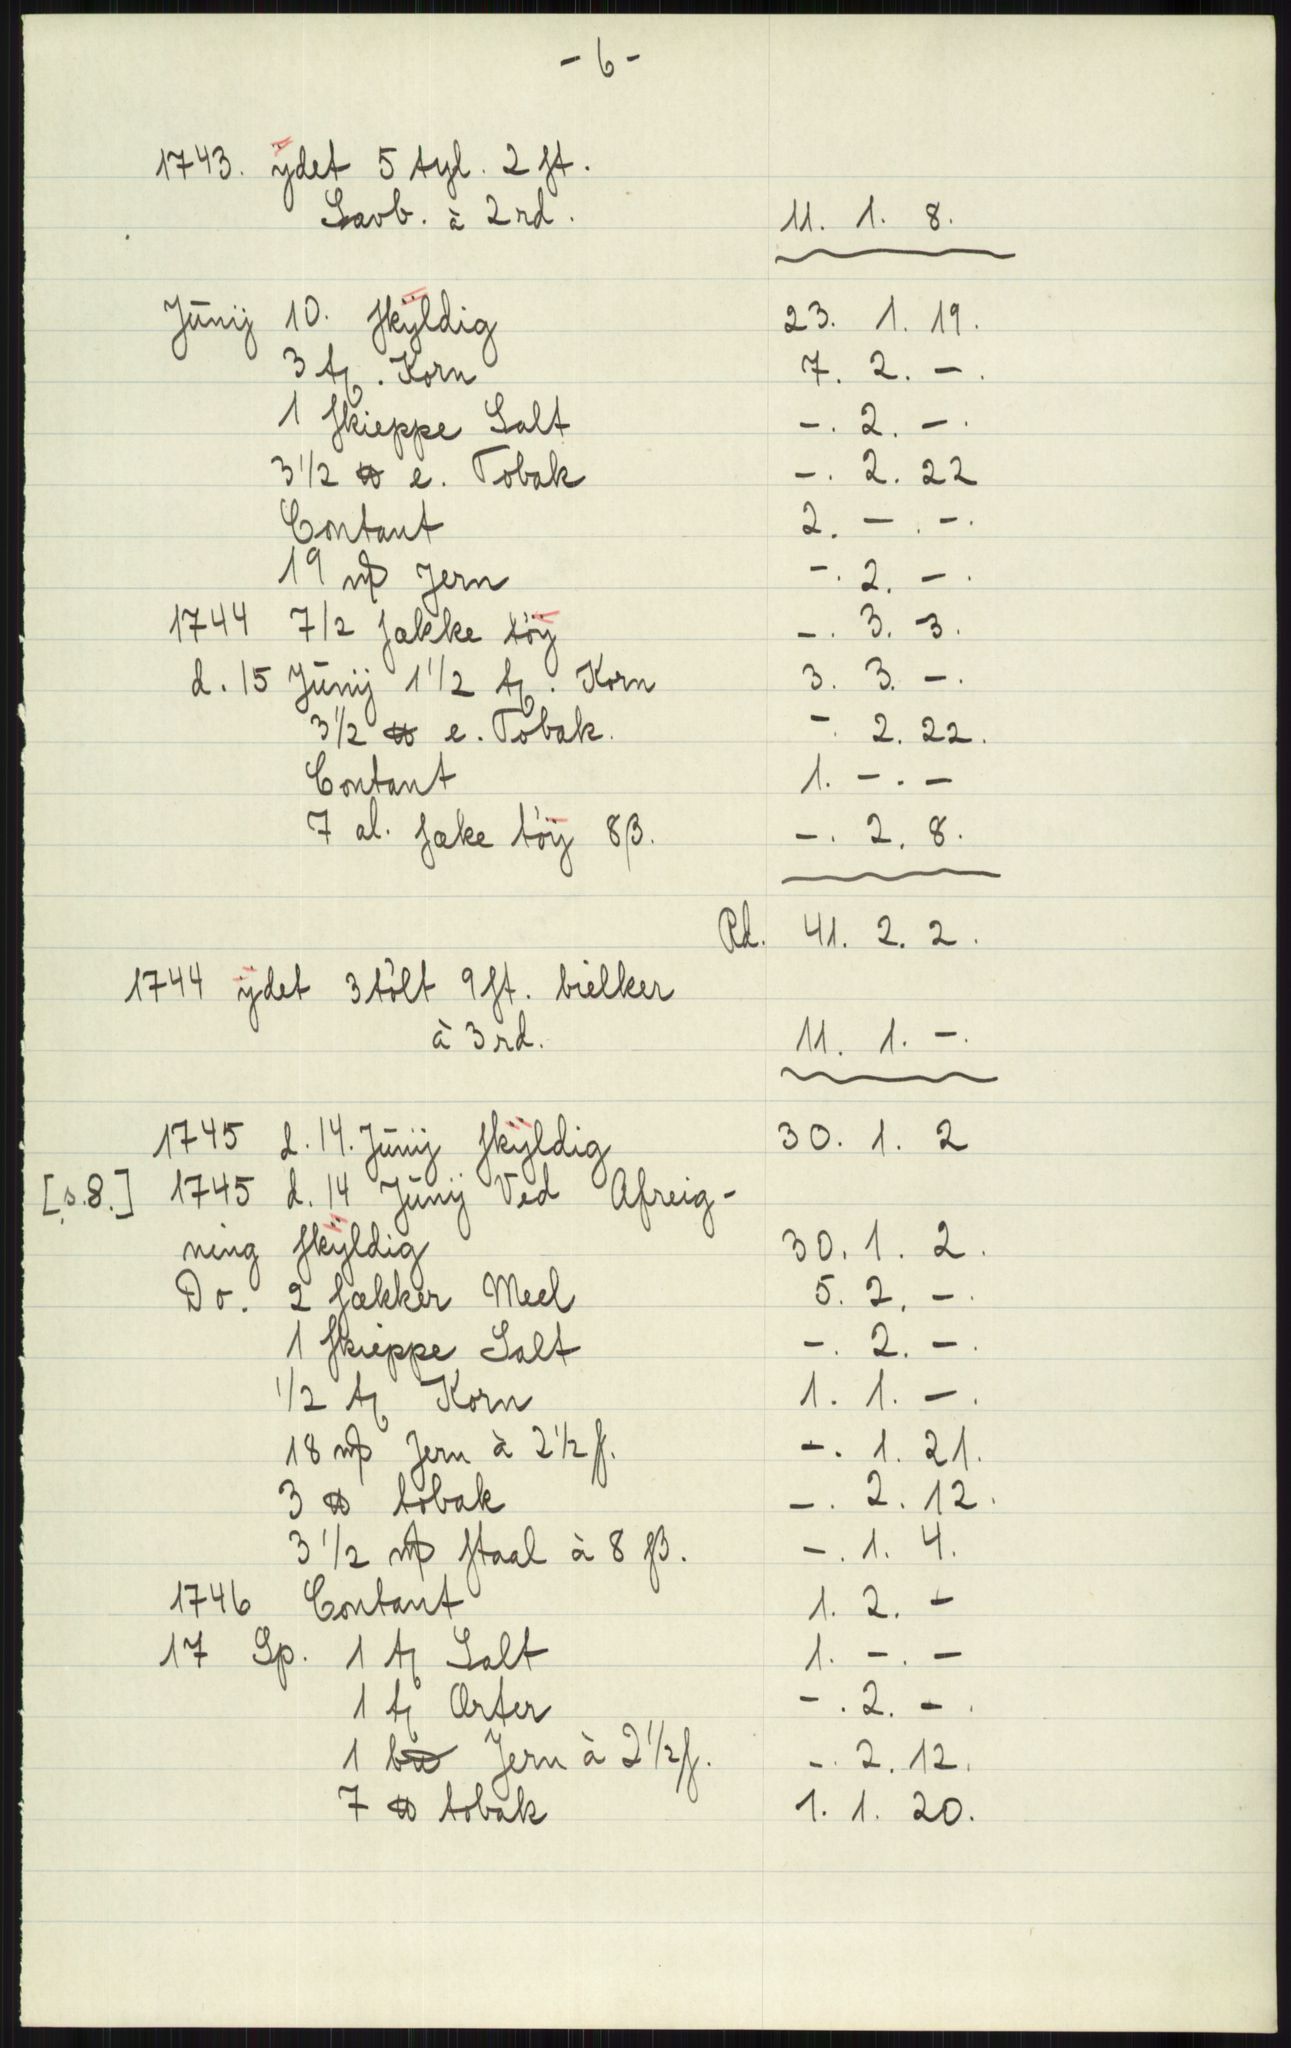 - 6 -
1743. ÿdet 5 tyl. 2 st.
Savb. à 2 rd. 11. 1. 8.
Jūnij 10. skÿldig 23. 1. 19.
3 tj. Korn 7. 2. -.
1 skieppe Salt -. 2. -.
3 1/2 ℔ e. Tobak -. 2. 22
Contant 2. - . -.
19 mp Jern -. 2. -.
1744 7/2 sække töÿ -. 3. 3.
d. 15 Jūnij 1 1/2 tj. Korn 3. 3. -.
3 1/2 ℔ e. Tobak. - 2. 22.
Contant 1. -. -
7 al. sæke töÿ 8 β. -. 2. 8.
Rd. 41. 2. 2.
1744 ÿdet 3 tölt 9 st. bielker
à 3 rd. 11. 1. -.
1745 d. 14. Jūnij skÿldig 30. 1. 2
[s. 8.] 1745 d. 14 Jūnij Ved Afreig-
ning skÿldig 30. 1. 2.
Do. 2 sækker Meel 5. 2. -.
1 skieppe Salt -. 2. -.
1/2 tj Korn 1. 1. -.
18 mp Jern à 2 1/2 s. -. 1. 21.
3 ℔ tobak -. 2. 12.
3 1/2 mp staal à 8 sβ. -. 1. 4.
1746 Contant 1. 2. -
17 Sp. 1 tj Salt 1. -. -
1 tj Ærter -. 2. -.
1 Jern à 2 1/2 s. -. 2. 12.
7 ℔ tobak 1. 1. 20.